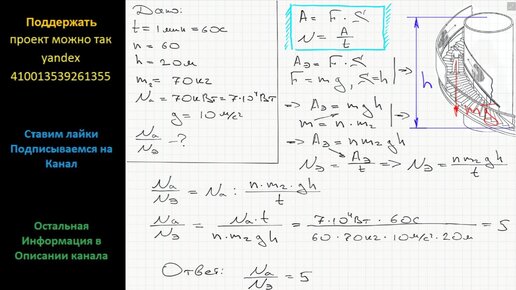 Поддержать
проект можно так
yandex
410013539261355
Ставим лайки
Подписываемся на
Канал
Остальная
Информация в
Описании канала
Дано:
t = 1 мин = 60с
n = 60
h = 20м
m₂ = 70кг
Nа = 70кВт = 7·10⁴Вт
g = 10 м/с²
Nа/Nэ - ?
A = F · S
N = A/t
=> Aэ = F · S
F = mg, S = h | =>
=> Aэ = mgh
m = n·m₂ | =>
=> Aэ = n m₂ gh
Nэ = Aэ/t => Nэ = n m₂ gh/t
h
mg
Nа/Nэ = Nа : n·m₂·gh/t
Nа/Nэ = Nа·t/n·m₂gh = 7·10⁴Вт · 60с/60·70кг·10м/с²·20м = 5
Ответ: Nа/Nэ = 5